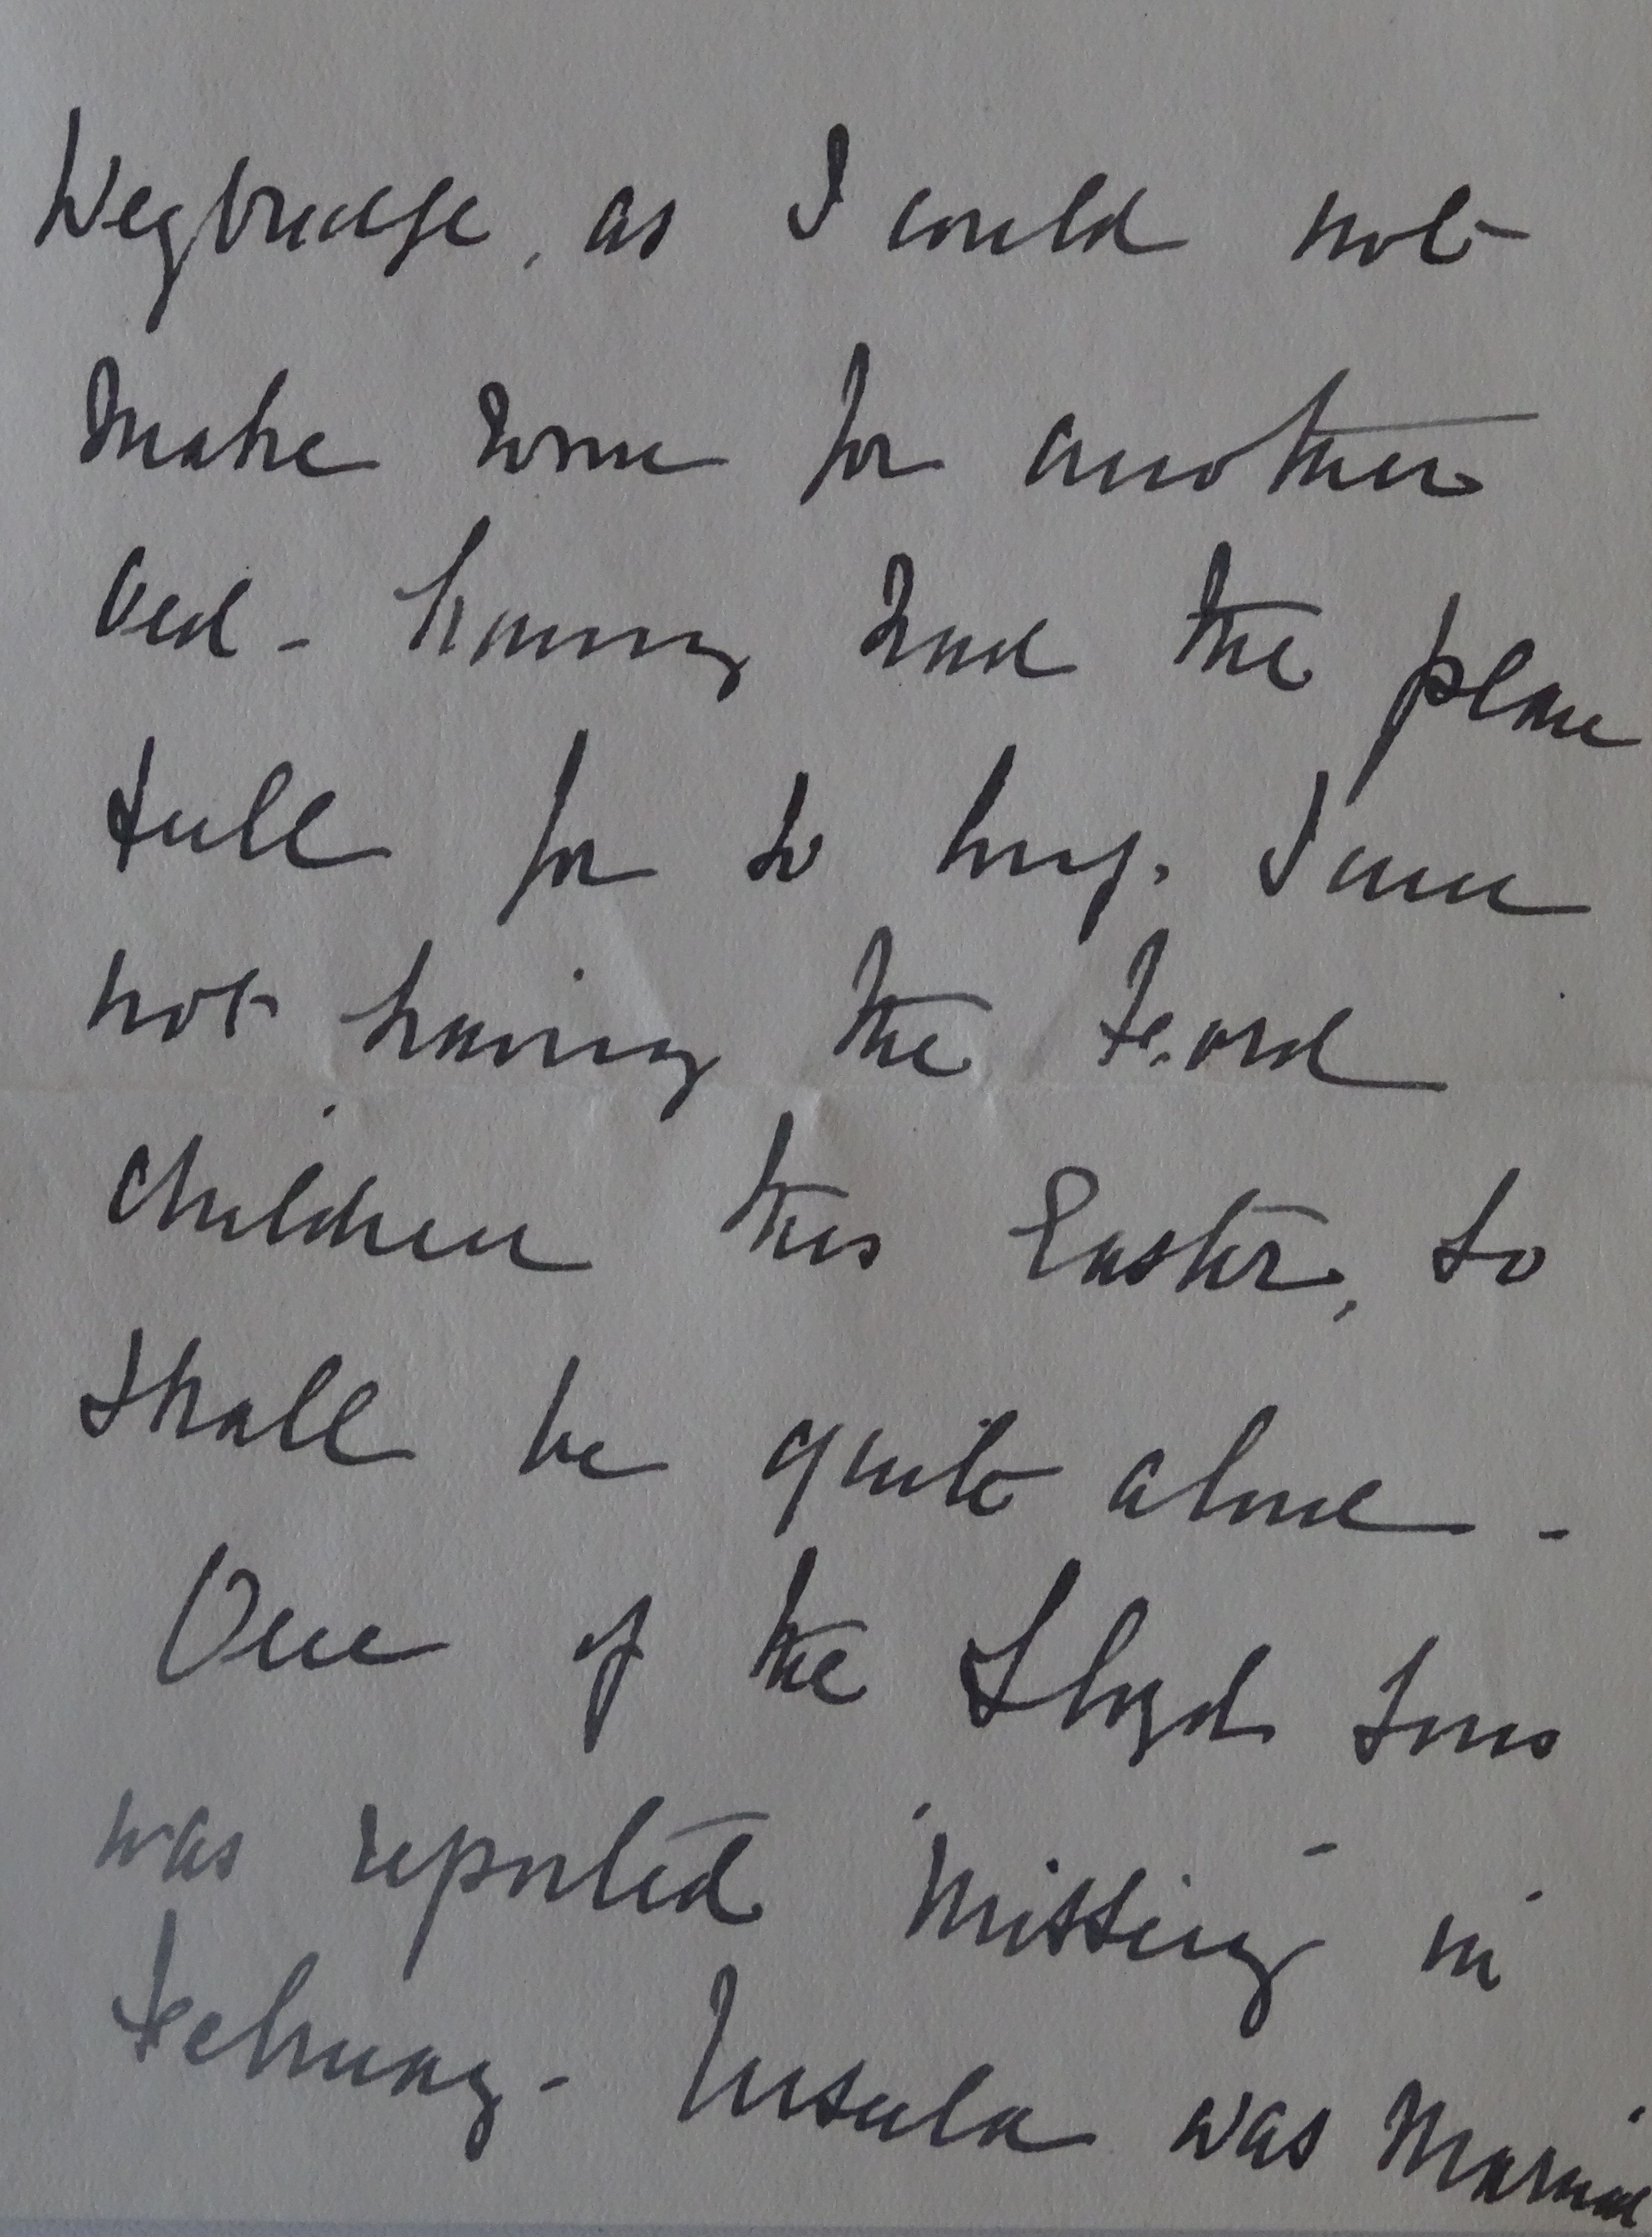 Weybridge, as I could not
make room for another
bed - having had the place
full for so long. I am
not having the
children this Easter, so
shall be quite alone -
One of the Lloyd sons
was reported "missing" in
February - Ursula was married